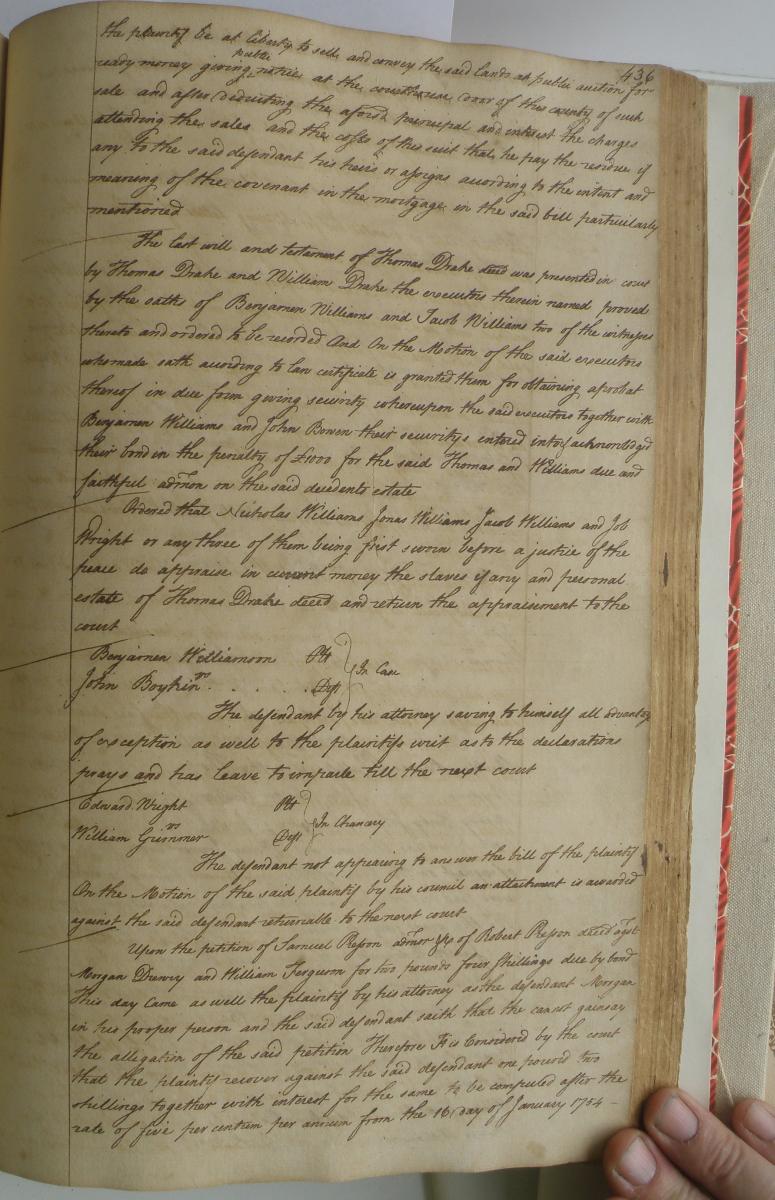 436
the plaintif be at liberty to sell and convey the said lands at public auction for
ready money giving public notice at the courthouse door of this county of such
sale and after deducting the aforsd principal and interest the charges
attending the sales and the costs of this suit that he pay the residue if
any to the said defendant his heirs or assigns according to the intent and
meaning of the covenant in the mortgage in the said bill particularly
mentioned
The last will and testament of Thomas Drake deced was presented in court
by Thomas Drake and William Drake the executors therein named proved
by the oaths of Benjamen Williams and Jacob Williams two of the witnesses
thereto and ordered to be recorded And On the Motion of the said executors
who made oath according to law certificate is granted them for obtaining a probat
thereof in due form giving security whereupon the said executors together with
Benjamen Williams and John Bowen their securitys entered into & acknowledged
their bond in the penalty of £1000 for the said Thomas and Williams due and
faithful admon on the said decedents estate
Ordered that Nicholas Williams Jonas Williams Jacob Williams and Job
Wright or any three of them being first sworn before a justice of the
peace do appraise in current money the slaves if any and personal
estate of Thomas Drake deced and return the appraisment to the
court
Benjamen Williamson Plt
vs In Case
John Boykin Deft
The defendant by his attorney saving to himself all advantag
of exception as well to the plaintifs writ as to the declarations
prays and has leave to imparle till the next court
Edward Wright Plt
vs In Chancery
William Gummer Deft
The defendant not appearing to answer the bill of the plaintif
On the Motion of the said plaintif by his council an attachment is awarded
against the said defendant returnable to the next court
Upon the petition of Samuel admor &c of Robert deced agst
Morgan Drewry and William Ferguson for two pounds four shillings due by bond
This day came as well the plaintif by his attorney as the defendant Morgan
in his proper person and the said defendant saith that he cannt gainsay
the allegation of the said petition Therefore It is Considered by the court
that the plaintif recover against the said defendant one pound two
shillings together with interest for the same to be computed after the
rate of five per centum per annum from the 16 day of January 1754